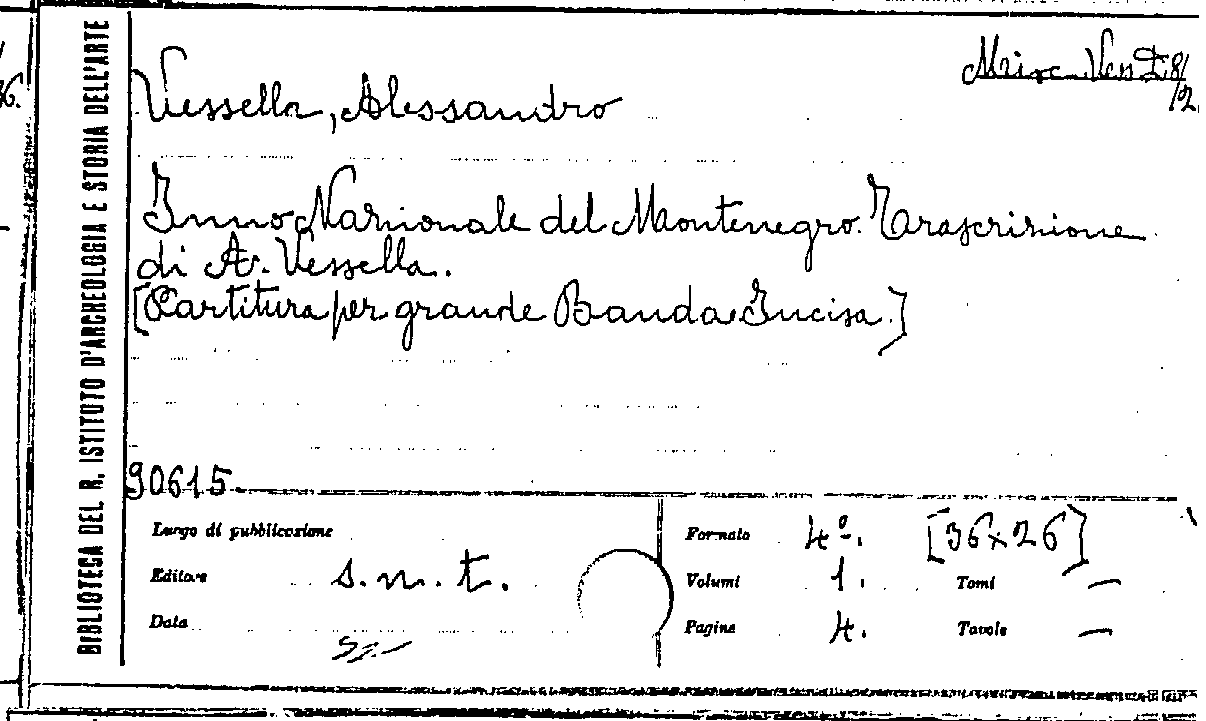 BIBLIOTECA DEL R. ISTITUTO D'ARCHEOLOGIA E STORIA DELL'ARTE
Vessella, Alessandro
Inno Nazionale del Montenegro. Trascrizione
di A. Vessella.
[Partitura per grande Banda Incisa.]
90615
Luogo di pubblicazione
Editore s.n.t.
Data
Formato 4º. [36x26]
Volumi 1. Tomi —
Pagine 4. Tavole —